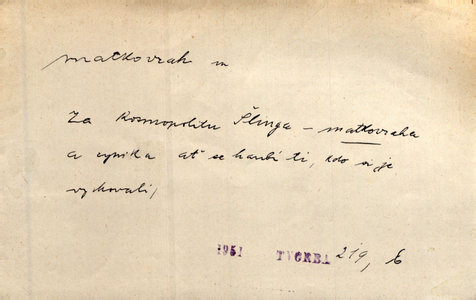 matkovrah m
Za kosmopolitu Šlinga – matkovraha
a cynika ať se hanbí ti, kdo si je
vychovali,
1951 TVORBA 219,